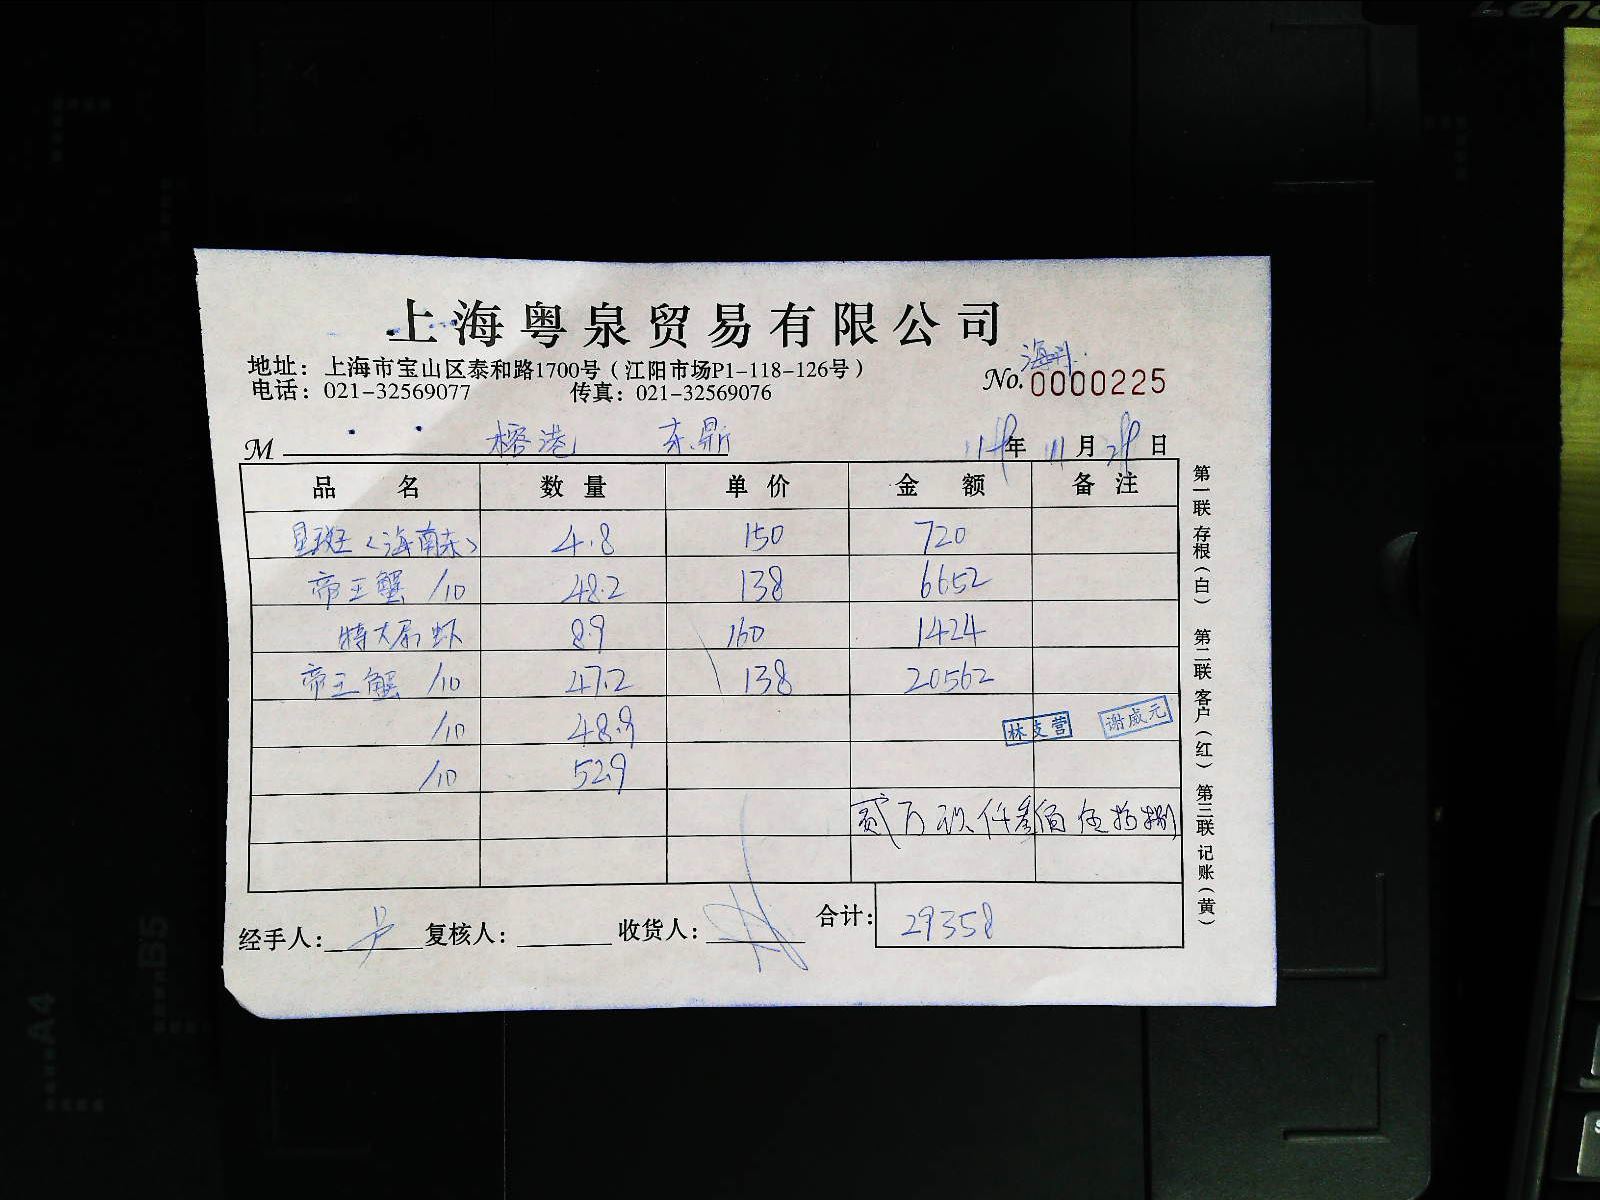 Leno
上海粤泉贸易有限公司
地址：上海市宝山区泰和路1700号（江阳市场P1-118-126号）
电话：021-32569077 传真：021-32569076
No.0000225
M 榕港
年 11月 日
品 名 数 量 单 价 金 额 备 注
星斑（海南东） 4.8 150 720
帝王蟹 /10 48.2 138 6652
特大尿虾 8.9 160 1424
帝王蟹 /10 47.2 138 20562
/10 48.9
/10 52.9
林支营 谢威元
贰万玖仟叁佰伍拾捌
经手人： 复核人： 收货人： 合计：29358
第一联 存根（白） 第二联 客户（红） 第三联 记账（黄）
A4
B5